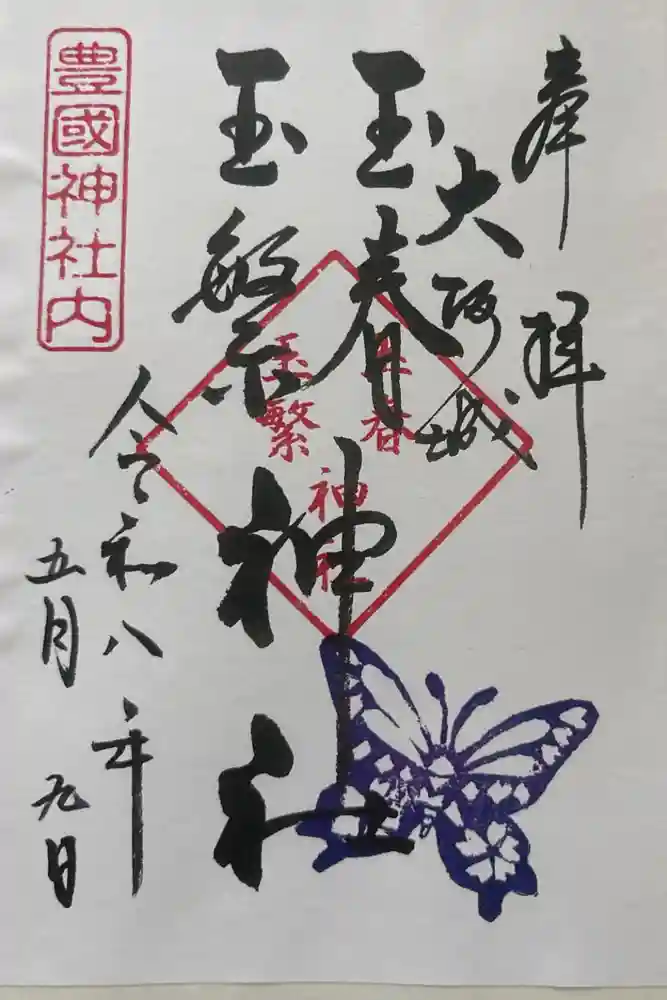 奉拝
大阪城
玉春
玉繁
神社
令和八年
五月九日
豊國神社内
玉春
玉繁
神社